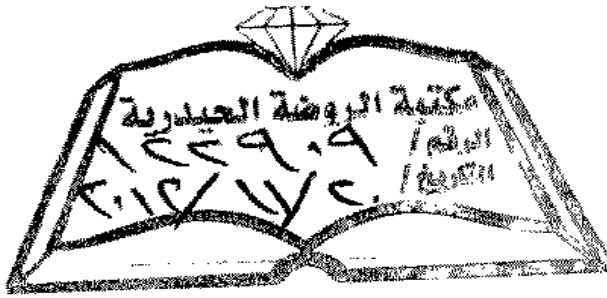 مكتبة الروضة الحيدرية
الرقم / ٨٢٢٩٠٩
التاريخ / ٢٠/١١/٢٠١٢